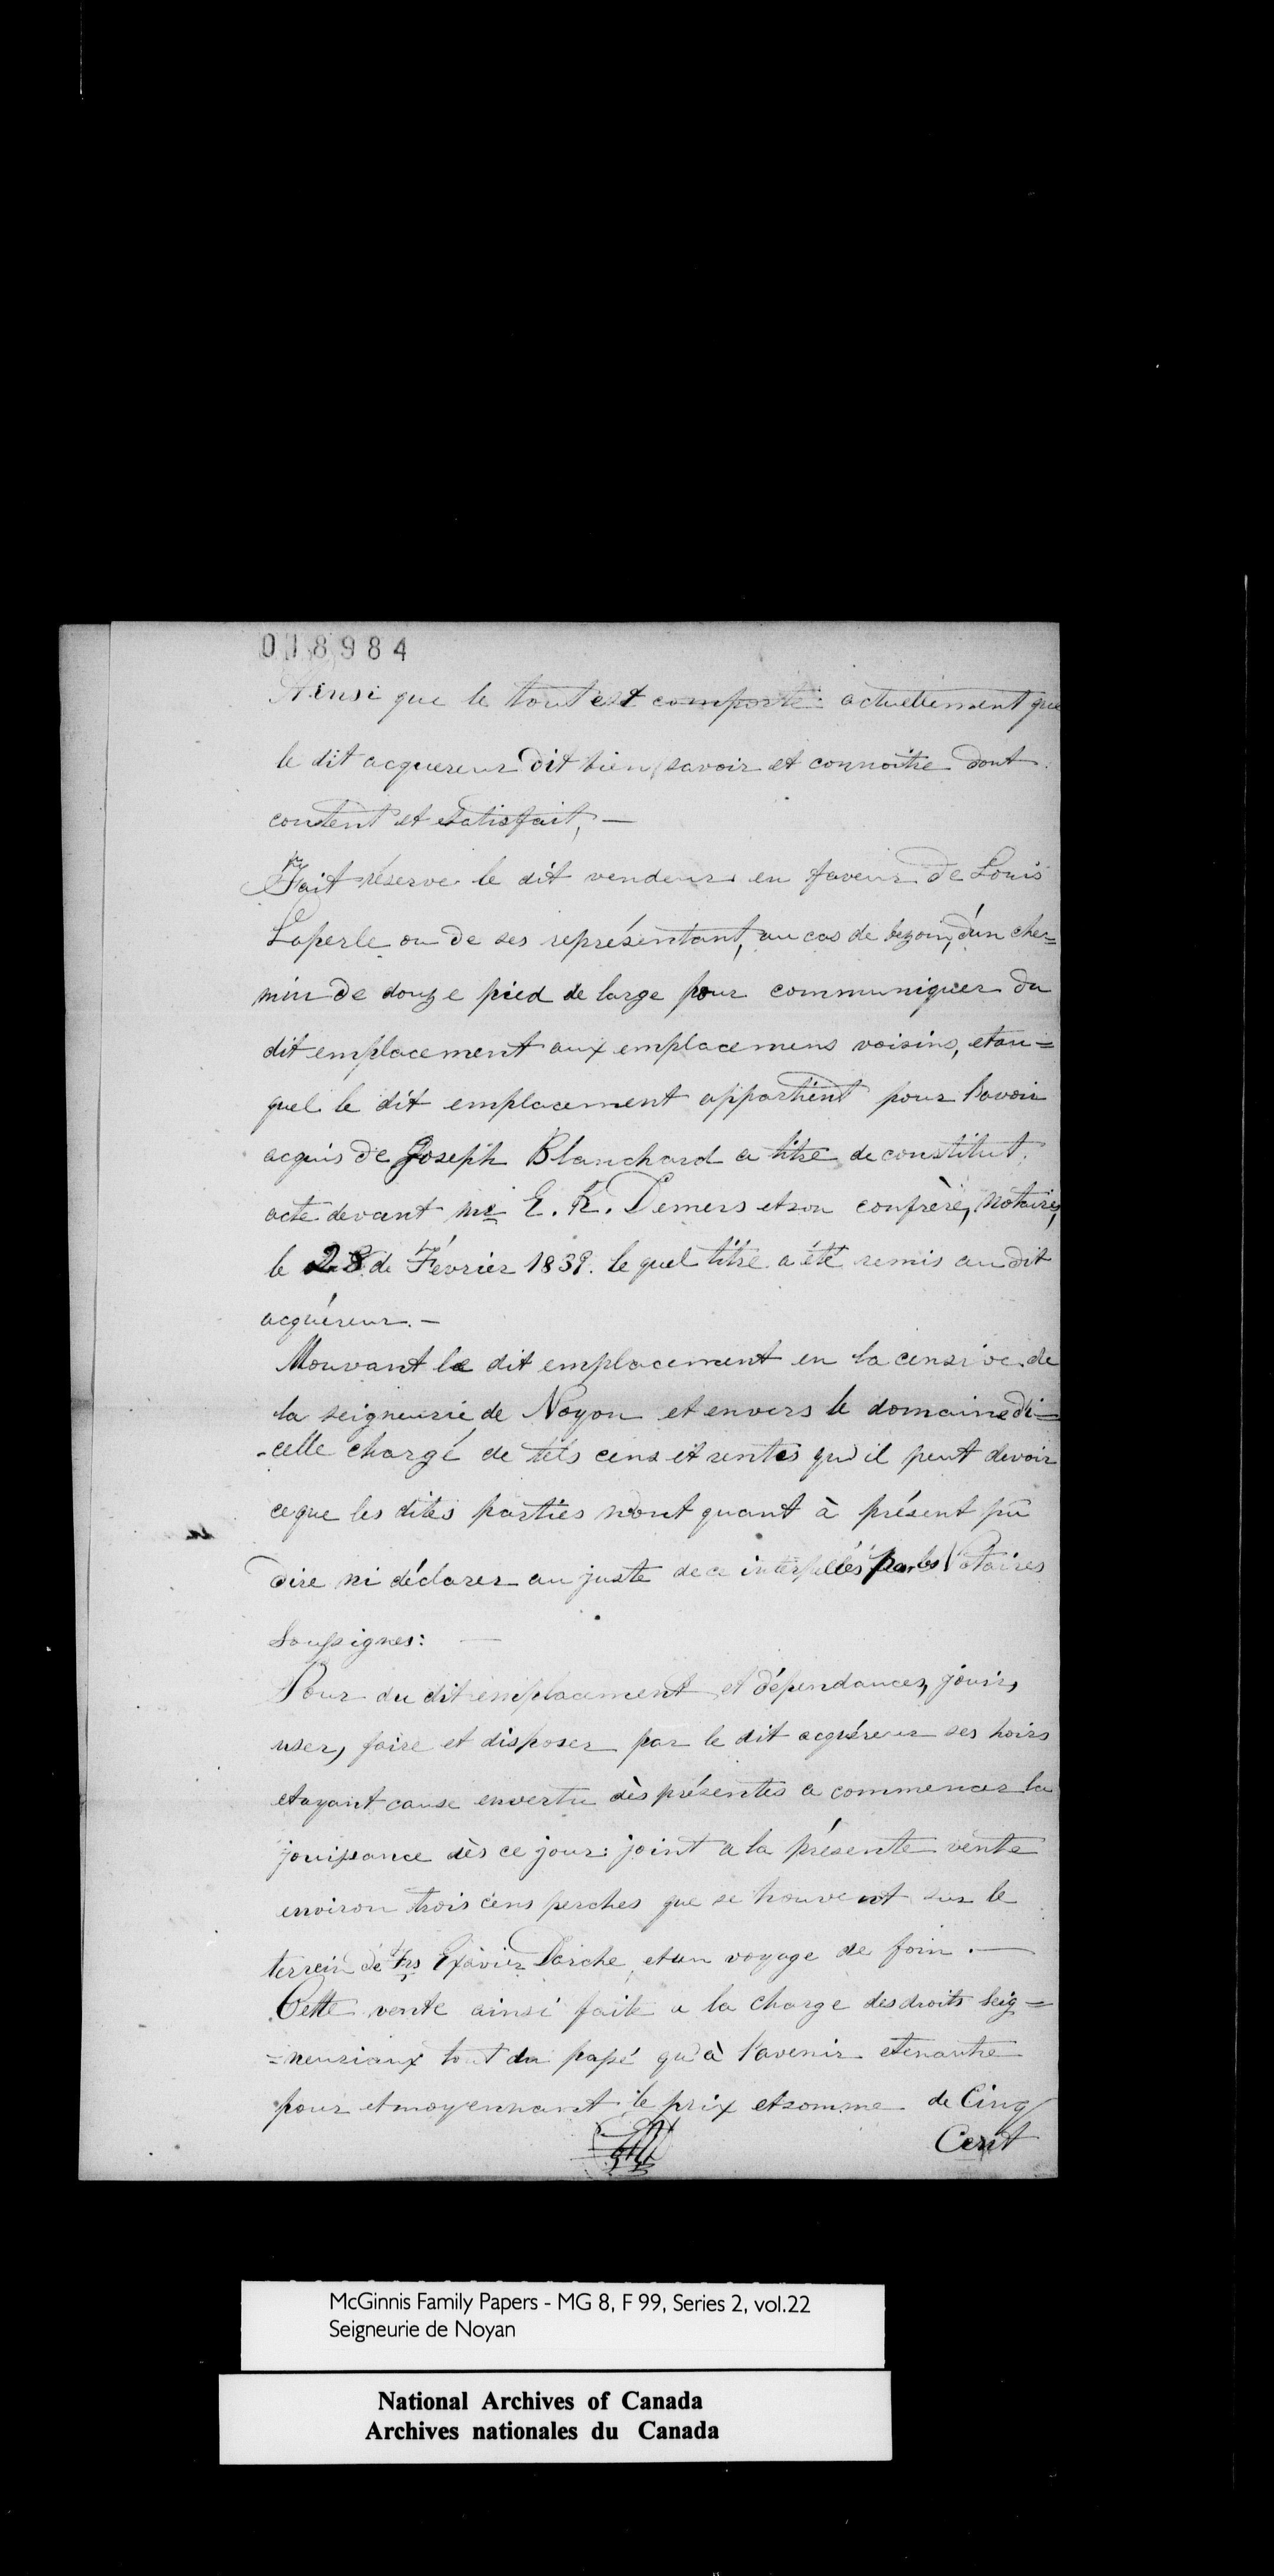 018984
Ainsi que le tout est comporte actuellement que
le dit acquereur dit bien savoir et connoitre dont
content et satisfait, —
Fait réserve le dit vendeur en faveur de Louis
Laperle ou de ses représentant, au cas de bezoin, d'un che=
min de douze pied de large pour communiquer du
dit emplacement aux emplacemens voisins, etau=
quel le dit emplacement appartient pour l'avoir
acquis de Joseph Blanchard a titre de constitut,
acte devant me E. R. Demers etson confrère, Notaires,
le 28 de Février 1839. le quel titre a été remis au dit
acquéreur. —
Mouvant le dit emplacement en la censive de
la seigneurie de Noyon et envers le domaine di=
-celle chargé de tels cens et rentes qu'il peut devoir
ceque les dites parties n'ont quant à présent pu
dire ni déclarer au juste de ce interpellés par les Notaires
Soussignes: —
Pour du dit emplacement et dépendances, jouir,
user, faire et disposer par le dit acquéreur ses hoirs
etayant cause envertu dès présentes a commencer la
jouissance dès ce jour: joint a la présente vente
environ trois cens perches que se trouvent sur le
terrein de Frs Exavier Darche, etun voyage de foin. —
Cette vente ainsi faite a la charge desdroits Seig=
=neuriaux tout du passé qu'à l'avenir etenoutre
pour etmoyennant le prix etsomme de Cinq
Cent
McGinnis Family Papers - MG 8, F 99, Series 2, vol.22
Seigneurie de Noyan
National Archives of Canada
Archives nationales du Canada